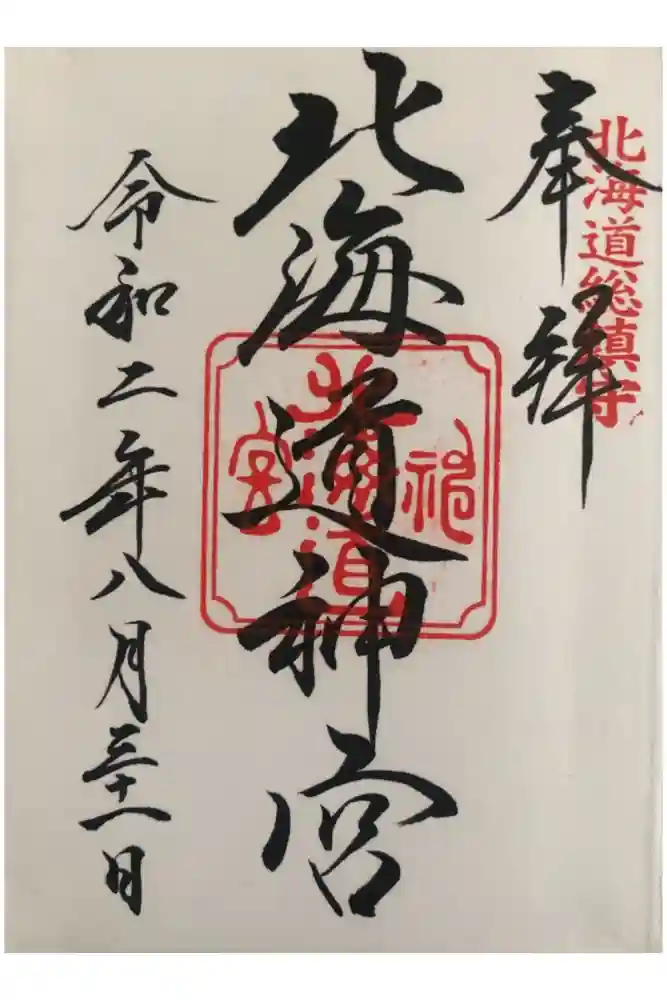 北海道総鎮守
奉拝
北海道神宮
北海道神宮
令和二年八月三十一日